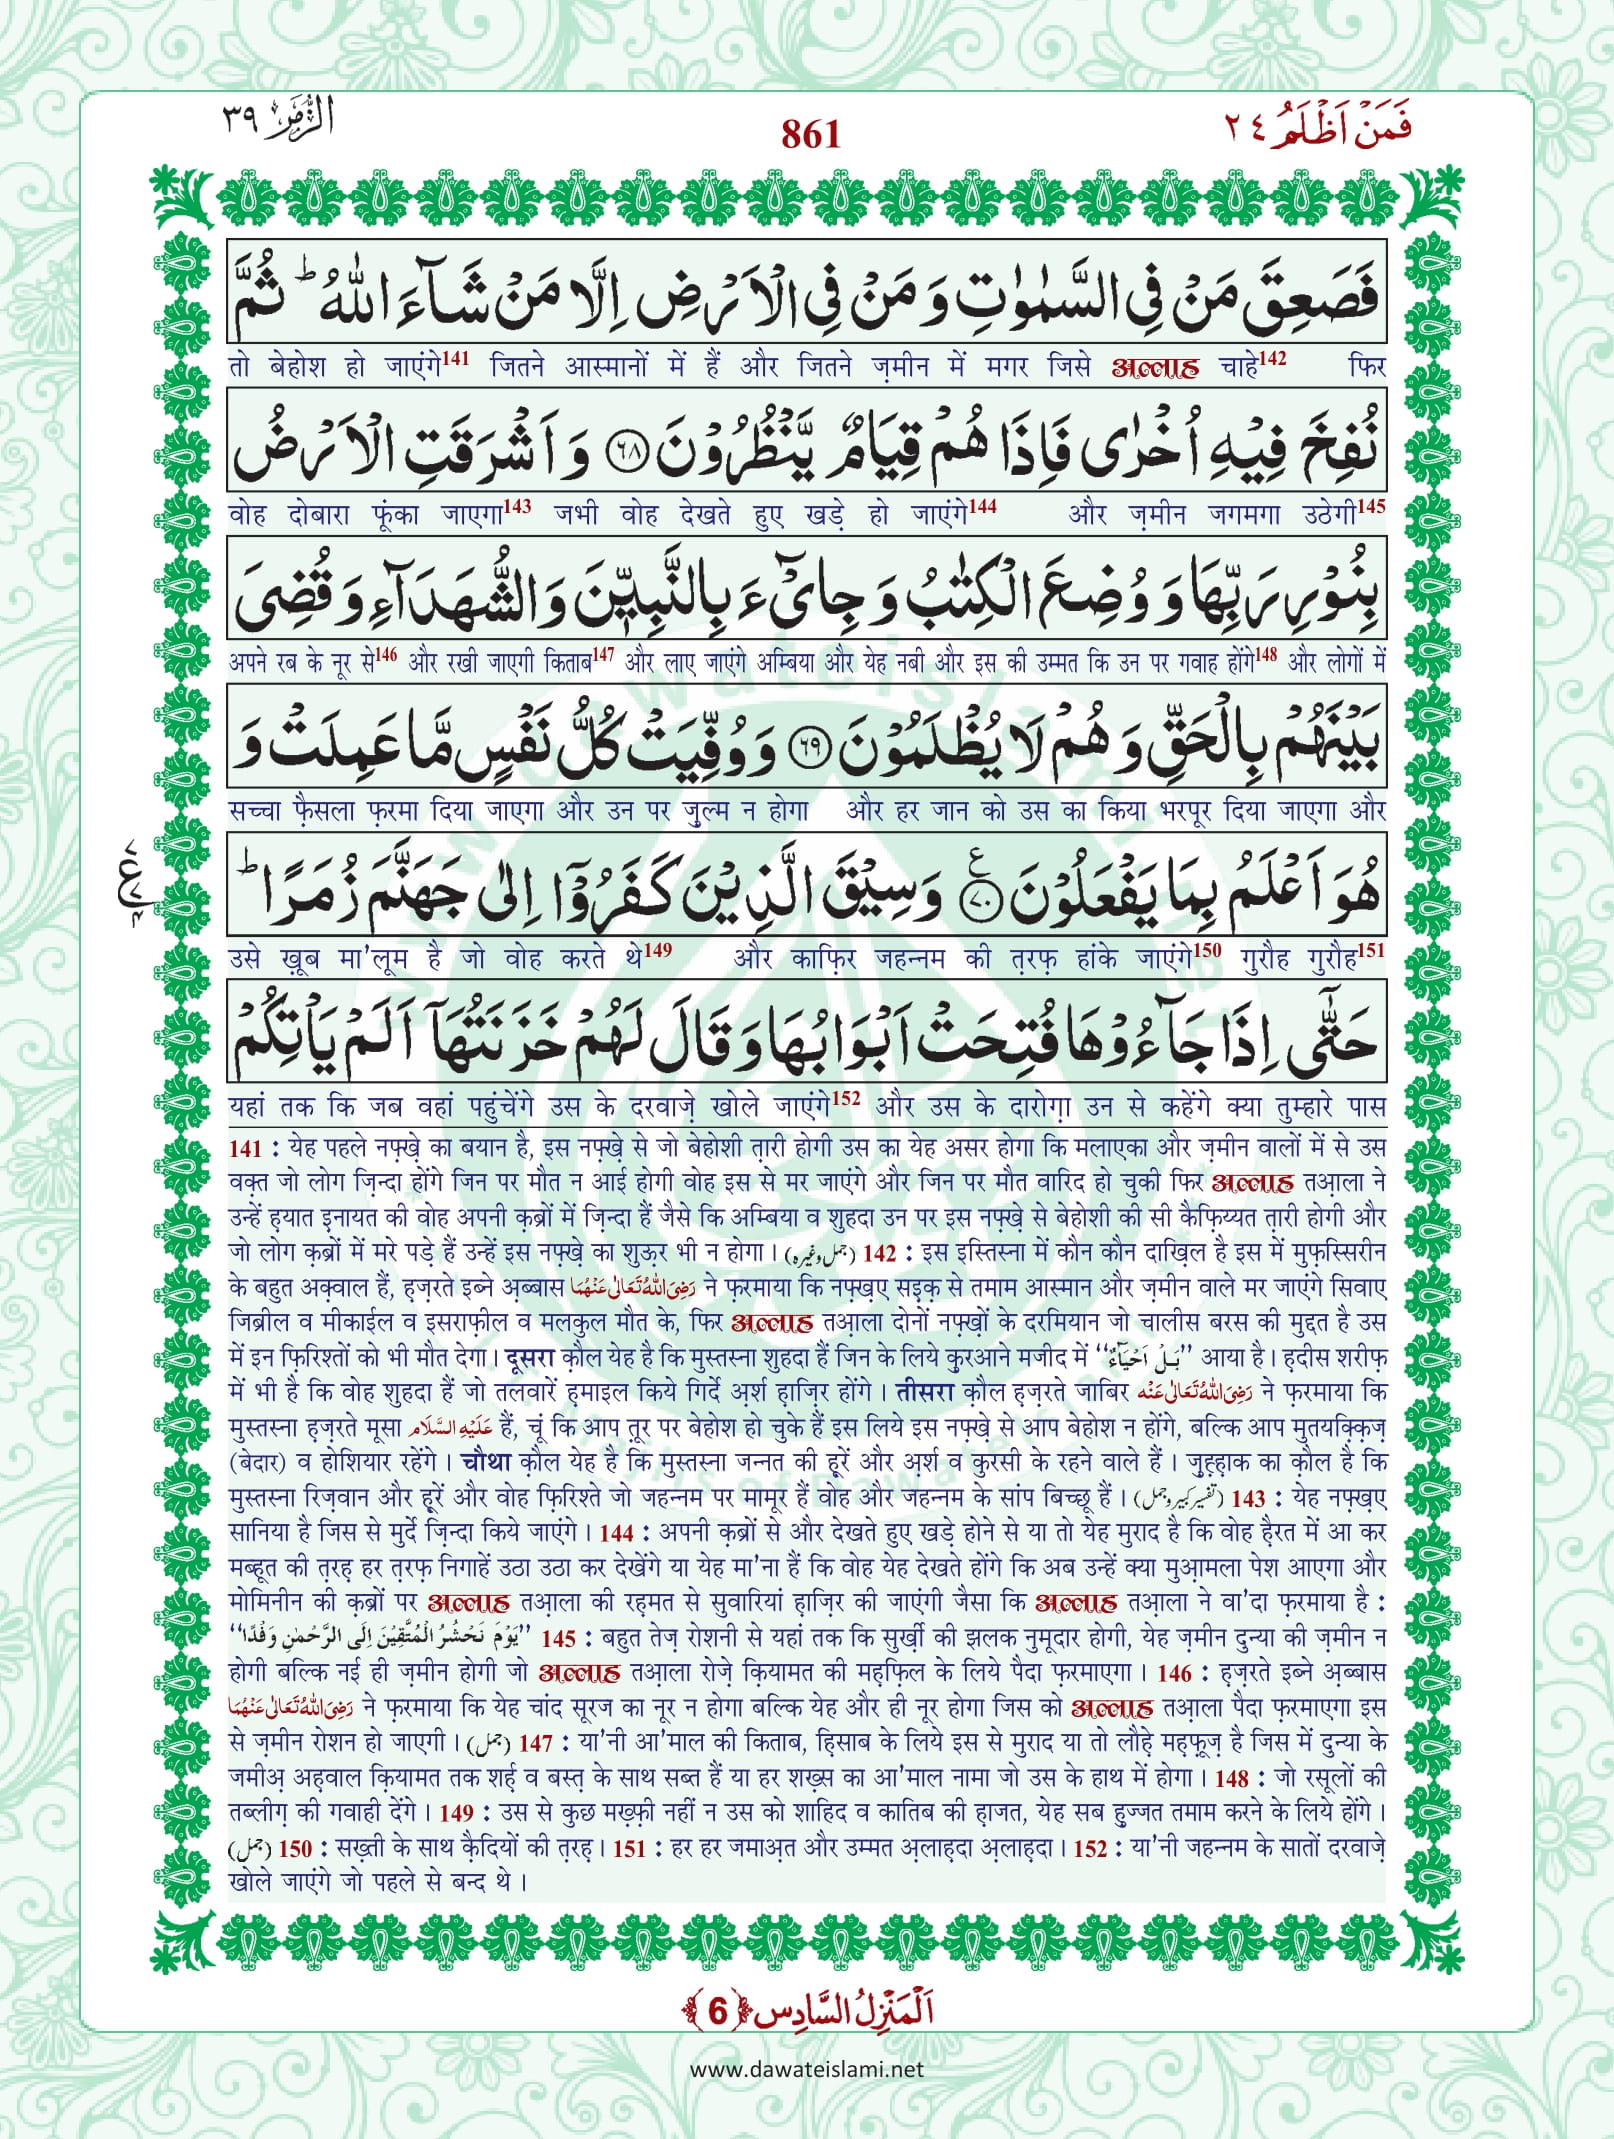 الزُّمَر ٣٩
861
فَمَنْ اَظْلَمُ ٢٤
فَصَعِقَ مَنْ فِی السَّمٰوٰتِ وَ مَنْ فِی الْاَرْضِ اِلَّا مَنْ شَآءَ اللّٰهُ ؕ ثُمَّ
तो बेहोश हो जाएंगे141 जितने आस्मानों में हैं और जितने ज़मीन में मगर जिसे अल्लाह चाहे142 फिर
نُفِخَ فِیْهِ اُخْرٰى فَاِذَا هُمْ قِیَامٌ یَّنْظُرُوْنَ ۝۶۸ وَ اَشْرَقَتِ الْاَرْضُ
वोह दोबारा फूंका जाएगा143 जभी वोह देखते हुए खड़े हो जाएंगे144 और ज़मीन जगमगा उठेगी145
بِنُوْرِ رَبِّهَا وَ وُضِعَ الْكِتٰبُ وَ جِایْٓءَ بِالنَّبِیّٖنَ وَ الشُّهَدَآءِ وَ قُضِیَ
अपने रब के नूर से146 और रखी जाएगी किताब147 और लाए जाएंगे अम्बिया और येह नबी और इस की उम्मत कि उन पर गवाह होंगे148 और लोगों में
بَیْنَهُمْ بِالْحَقِّ وَ هُمْ لَا یُظْلَمُوْنَ ۝۶۹ وَ وُفِّیَتْ كُلُّ نَفْسٍ مَّا عَمِلَتْ وَ
सच्चा फ़ैसला फ़रमा दिया जाएगा और उन पर ज़ुल्म न होगा और हर जान को उस का किया भरपूर दिया जाएगा और
هُوَ اَعْلَمُ بِمَا یَفْعَلُوْنَ ۝۷۰ ع وَ سِیْقَ الَّذِیْنَ كَفَرُوْۤا اِلٰى جَهَنَّمَ زُمَرًا ؕ
उसे ख़ूब मा'लूम है जो वोह करते थे149 और काफ़िर जहन्नम की त़रफ़ हांके जाएंगे150 गुरौह गुरौह151
حَتّٰۤى اِذَا جَآءُوْهَا فُتِحَتْ اَبْوَابُهَا وَ قَالَ لَهُمْ خَزَنَتُهَاۤ اَلَمْ یَاْتِكُمْ
यहां तक कि जब वहां पहुंचेंगे उस के दरवाज़े खोले जाएंगे152 और उस के दारोग़ा उन से कहेंगे क्या तुम्हारे पास
141 : येह पहले नफ़्ख़े का बयान है, इस नफ़्ख़े से जो बेहोशी त़ारी होगी उस का येह असर होगा कि मलाएका और ज़मीन वालों में से उस
वक़्त जो लोग ज़िन्दा होंगे जिन पर मौत न आई होगी वोह इस से मर जाएंगे और जिन पर मौत वारिद हो चुकी फिर अल्लाह तआ़ला ने
उन्हें ह़यात इनायत की वोह अपनी क़ब्रों में ज़िन्दा हैं जैसे कि अम्बिया व शुहदा उन पर इस नफ़्ख़े से बेहोशी की सी कैफ़िय्यत त़ारी होगी और
जो लोग क़ब्रों में मरे पड़े हैं उन्हें इस नफ़्ख़े का शुऊर भी न होगा। (جمل وغیرہ) 142 : इस इस्तिस्ना में कौन कौन दाख़िल है इस में मुफ़स्सिरीन
के बहुत अक़्वाल हैं, ह़ज़रते इब्ने अ़ब्बास رَضِیَ اللّٰهُ تَعَالٰی عَنْهُمَا ने फ़रमाया कि नफ़्ख़ए सइ़क़ से तमाम आस्मान और ज़मीन वाले मर जाएंगे सिवाए
जिब्रील व मीकाईल व इसराफ़ील व मलकुल मौत के, फिर अल्लाह तआ़ला दोनों नफ़्ख़ों के दरमियान जो चालीस बरस की मुद्दत है उस
में इन फ़िरिश्तों को भी मौत देगा। दूसरा क़ौल येह है कि मुस्तस्ना शुहदा हैं जिन के लिये कुरआने मजीद में ''بَلْ اَحْیَآءٌ'' आया है। ह़दीस शरीफ़
में भी है कि वोह शुहदा हैं जो तलवारें ह़माइल किये गिर्दे अ़र्श ह़ाज़िर होंगे। तीसरा क़ौल ह़ज़रते जाबिर رَضِیَ اللّٰهُ تَعَالٰی عَنْه ने फ़रमाया कि
मुस्तस्ना ह़ज़रते मूसा عَلَیْهِ السَّلَام हैं, चूं कि आप त़ूर पर बेहोश हो चुके हैं इस लिये इस नफ़्ख़े से आप बेहोश न होंगे, बल्कि आप मुतयक़्क़िज़
(बेदार) व होशियार रहेंगे। चौथा क़ौल येह है कि मुस्तस्ना जन्नत की हूरें और अ़र्श व कुरसी के रहने वाले हैं। ज़ुह़्ह़ाक का क़ौल है कि
मुस्तस्ना रिज़वान और हूरें और वोह फ़िरिश्ते जो जहन्नम पर मामूर हैं वोह और जहन्नम के सांप बिच्छू हैं। (تفسیر کبیر وجمل) 143 : येह नफ़्ख़ए
सानिया है जिस से मुर्दे ज़िन्दा किये जाएंगे। 144 : अपनी क़ब्रों से और देखते हुए खड़े होने से या तो येह मुराद है कि वोह ह़ैरत में आ कर
मब्हूत की त़रह़ हर त़रफ़ निगाहें उठा उठा कर देखेंगे या येह मा'ना हैं कि वोह येह देखते होंगे कि अब उन्हें क्या मुआ़मला पेश आएगा और
मोमिनीन की क़ब्रों पर अल्लाह तआ़ला की रह़मत से सुवारियां ह़ाज़िर की जाएंगी जैसा कि अल्लाह तआ़ला ने वा'दा फ़रमाया है :
''یَوْمَ نَحْشُرُ الْمُتَّقِیْنَ اِلَی الرَّحْمٰنِ وَفْدًا'' 145 : बहुत तेज़ रोशनी से यहां तक कि सुर्ख़ी की झलक नुमूदार होगी, येह ज़मीन दुन्या की ज़मीन न
होगी बल्कि नई ही ज़मीन होगी जो अल्लाह तआ़ला रोज़े क़ियामत की मह़फ़िल के लिये पैदा फ़रमाएगा। 146 : ह़ज़रते इब्ने अ़ब्बास
رَضِیَ اللّٰهُ تَعَالٰی عَنْهُمَا ने फ़रमाया कि येह चांद सूरज का नूर न होगा बल्कि येह और ही नूर होगा जिस को अल्लाह तआ़ला पैदा फ़रमाएगा इस
से ज़मीन रोशन हो जाएगी। (جمل) 147 : या'नी आ'माल की किताब, ह़िसाब के लिये इस से मुराद या तो लौह़े मह़फ़ूज़ है जिस में दुन्या के
जमीअ़ अह़वाल क़ियामत तक शर्ह़ व बस्त़ के साथ सब्त हैं या हर शख़्स का आ'माल नामा जो उस के हाथ में होगा। 148 : जो रसूलों की
तब्लीग़ की गवाही देंगे। 149 : उस से कुछ मख़्फ़ी नहीं न उस को शाहिद व कातिब की ह़ाजत, येह सब ह़ुज्जत तमाम करने के लिये होंगे।
(جمل) 150 : सख़्ती के साथ क़ैदियों की त़रह़। 151 : हर हर जमाअ़त और उम्मत अ़लाह़दा अ़लाह़दा। 152 : या'नी जहन्नम के सातों दरवाज़े
खोले जाएंगे जो पहले से बन्द थे।
اَلْمَنْزِلُ السَّادِس ﴿6﴾
www.dawateislami.net